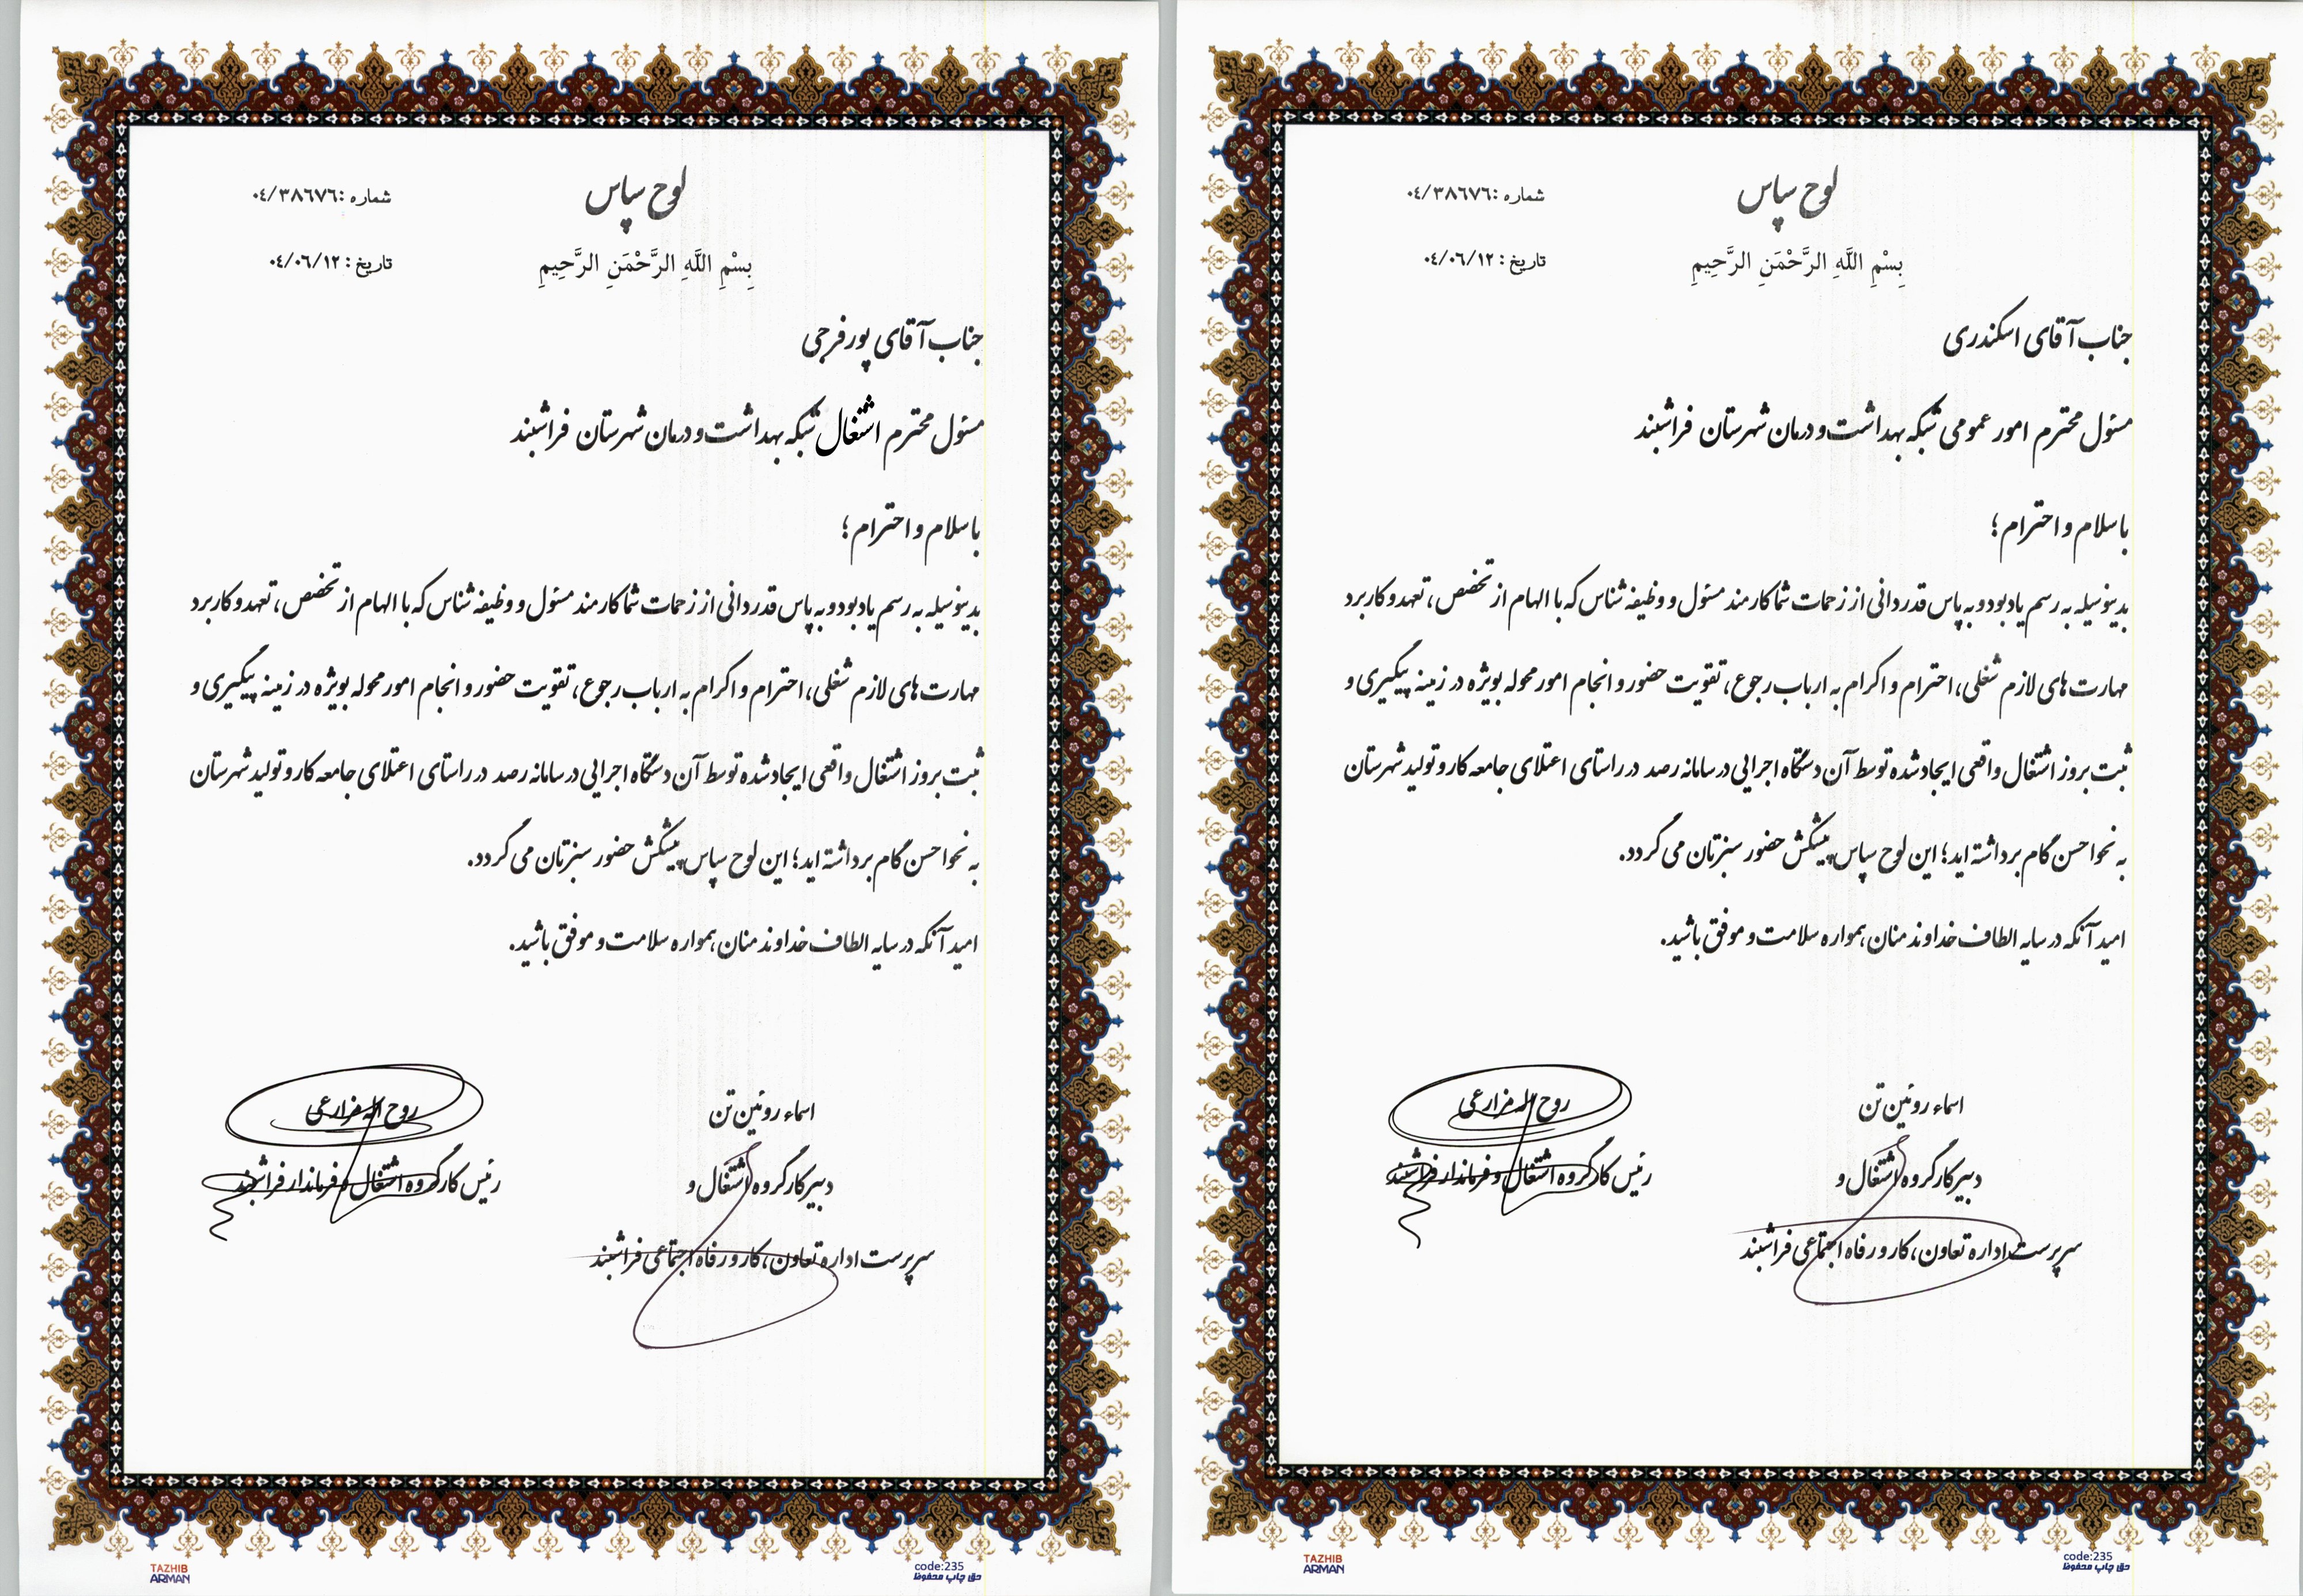 لوح سپاس
شماره :۰۴/۳۸٦۷٦
بِسْمِ اللَّهِ الرَّحْمَنِ الرَّحِيمِ
تاریخ : ۰۴/۰٦/۱۲
جناب آقای اسکندری
مسئول محترم امور عمومی شبکه بهداشت و درمان شهرستان فراشبند
باسلام و احترام ؛
بدینوسیله به رسم یادبود و به پاس قدردانی از زحمات شما کارمند مسئول و وظیفه شناس که با الهام از تخصص ، تعهد و کاربرد
مهارت های لازم شغلی ، احترام و اکرام به ارباب رجوع ، تقویت حضور و انجام امور محوله بویژه در زمینه پیگیری و
ثبت بروز اشتغال واقعی ایجاد شده توسط آن دستگاه اجرایی در سامانه رصد در راستای اعتلای جامعه کار و تولید شهرستان
به نحو احسن گام برداشته اید ؛ این لوح سپاس پیشکش حضور سبزتان می گردد.
امید آنکه در سایه الطاف خداوند منان همواره سلامت و موفق باشید.
اسماء روئین تن
روح اله مزارعی
دبیر کارگروه اشتغال و
رئیس کارگروه اشتغال و فرماندار فراشبند
سرپرست اداره تعاون ، کار و رفاه اجتماعی فراشبند
TAZHIB
ARMAN
code:235
حق چاپ محفوظ
لوح سپاس
شماره :۰۴/۳۸٦۷٦
بِسْمِ اللَّهِ الرَّحْمَنِ الرَّحِيمِ
تاریخ : ۰۴/۰٦/۱۲
جناب آقای پورفرجی
مسئول محترم اشتغال شبکه بهداشت و درمان شهرستان فراشبند
باسلام و احترام ؛
بدینوسیله به رسم یادبود و به پاس قدردانی از زحمات شما کارمند مسئول و وظیفه شناس که با الهام از تخصص ، تعهد و کاربرد
مهارت های لازم شغلی ، احترام و اکرام به ارباب رجوع ، تقویت حضور و انجام امور محوله بویژه در زمینه پیگیری و
ثبت بروز اشتغال واقعی ایجاد شده توسط آن دستگاه اجرایی در سامانه رصد در راستای اعتلای جامعه کار و تولید شهرستان
به نحو احسن گام برداشته اید ؛ این لوح سپاس پیشکش حضور سبزتان می گردد.
امید آنکه در سایه الطاف خداوند منان همواره سلامت و موفق باشید.
اسماء روئین تن
روح اله مزارعی
دبیر کارگروه اشتغال و
رئیس کارگروه اشتغال و فرماندار فراشبند
سرپرست اداره تعاون ، کار و رفاه اجتماعی فراشبند
TAZHIB
ARMAN
code:235
حق چاپ محفوظ